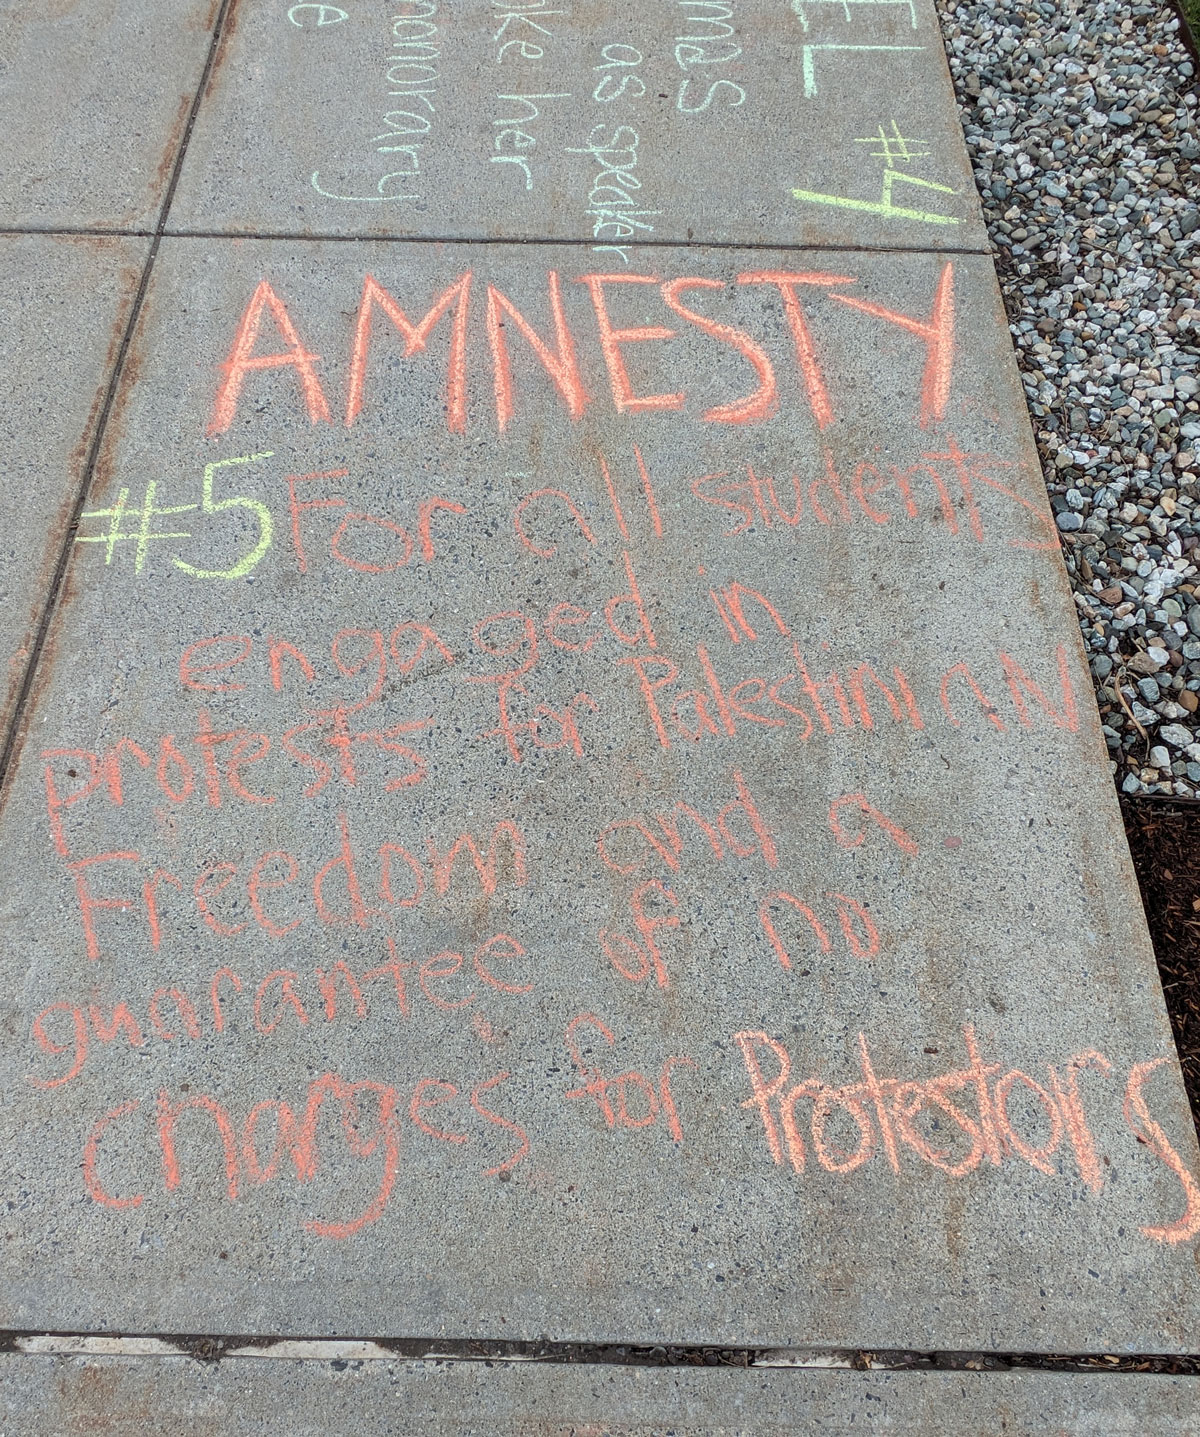 EL
#4
as speaker
her
AMNESTY
#5 For all students
engaged in
protests for Palestinian
Freedom and a
guarantee of no
charges for Protestors